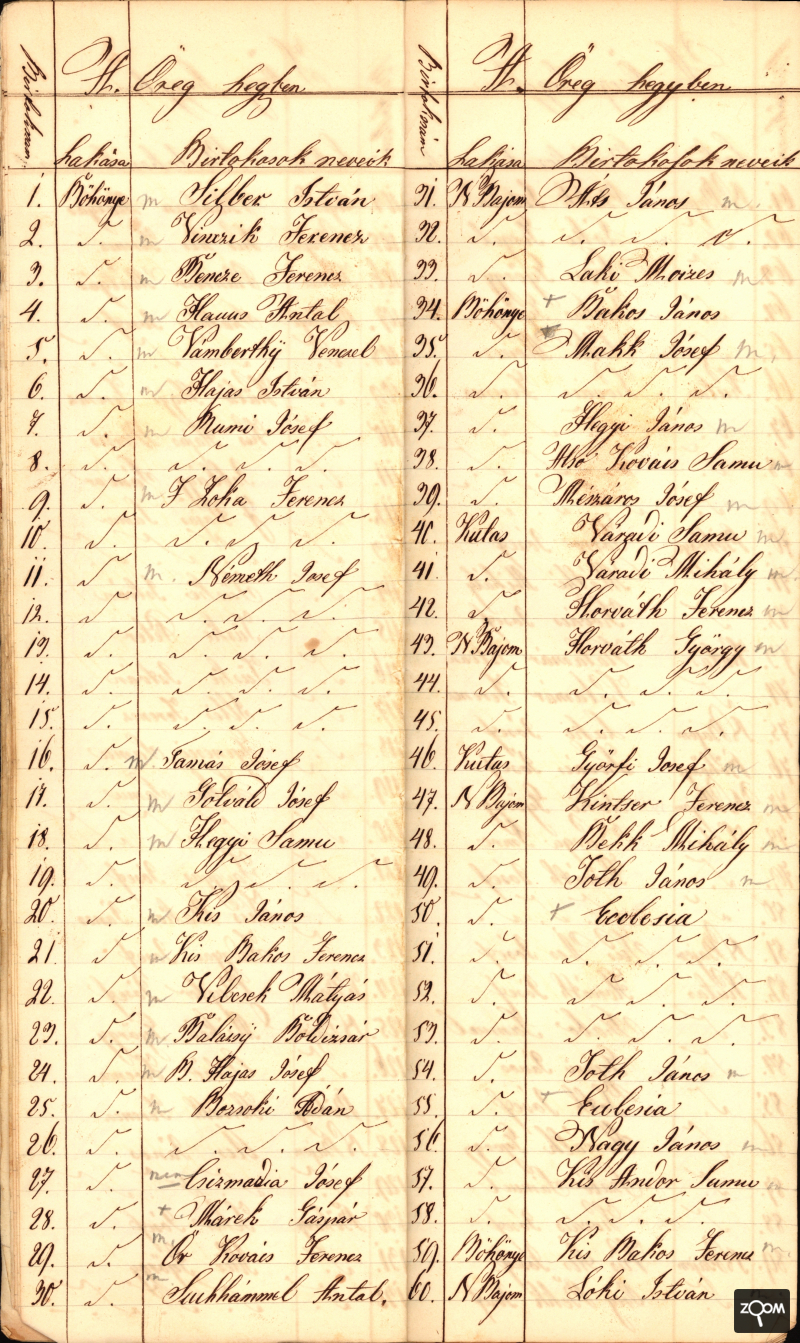 Birtokszám A. Öreg hegyben
Lakása Birtokosok neveik
1. Böhönye m Silber István
2. d. m Vinczik Ferencz
3. d. m Bencze Ferencz
4. d. m Antal
5. d. m Vámberthÿ Venczel
6. d. m Hajas István
7. d. m Rumi Jósef
8. d. d. d. d.
9. d. m F Zoka Ferencz
10. d. d. d. d.
11. d m. Németh Josef
12. d d. d. d.
13. d. d. d. d.
14. d. d. d. d.
15. d. d. d. d.
16. d. m Tamás Jósef
17. d. m Gotváld Jósef
18. d. m Hegyi Samu
19. d. d. d. d.
20. d. m Kis János
21. d m Kis Bakos Ferencz
22. d. m Vilcsek Mátyás
23. d. m Balássÿ Boldizsár
24. d. m B. Hajas Jósef
25. d. m Bozsoki Ádán
26. d. d. d. d.
27. d. Csizmadia Jósef
28. d. + Márek Gáspár
29. d. m. Ör Kovács Ferencz
30. d. m Suchhámmel Antal.
Birtokszám A. Öreg hegyben
Lakása Birtokosok neveik
31. N Bajom Áts János m.
32. d. d. d. d.
33. d. Laki Moizes m
34. Böhönye + Bakos János
35. d. Makk Jósef m.
36. d. d. d. d.
37. d. Hegyi János m
38. d. Alsó Kovács Samu m
39. d. Mészáros Jósef m
40. Kutas Váradi Samu m
41. d. Váradi Mihály m.
42. d Horváth Ferencz m
43. N Bajom Horváth György m
44. d. d. d. d.
45. d. d. d. d.
46. Kutas Györfi Josef m
47. N Bajom Kintser Ferencz m
48. d. Bekk Mihály m
49. d. Toth János m
50. d. + Ecclesia
51. d. d. d. d.
52. d. d. d. d.
53. d. d. d. d.
54. d. Toth János m
55. d. + Eclesia
56. d. Nagy János m
57. d. Kis Andor Samu m
58. d. d. d. d.
59. Böhönye Kis Bakos Ferencz m.
60. N Bajom Lóki István
ZOOM